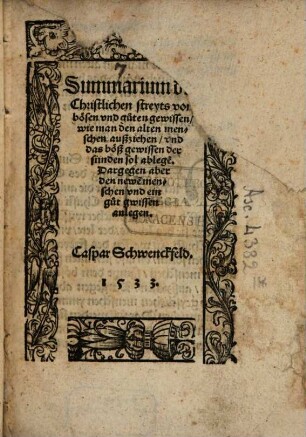 7
Summarium d
Christlichen streyts von
bösen vnd gůten gewissen/
wie man den alten men-
schen außziehen/ vnd
das böß gewissen der
sünden sol ablegē.
Dargegen aber
den newē men-
schen vnd ein
gůt gwissen
anlegen.
Caspar Schwenckfeld.
1533.
Asc. 4382